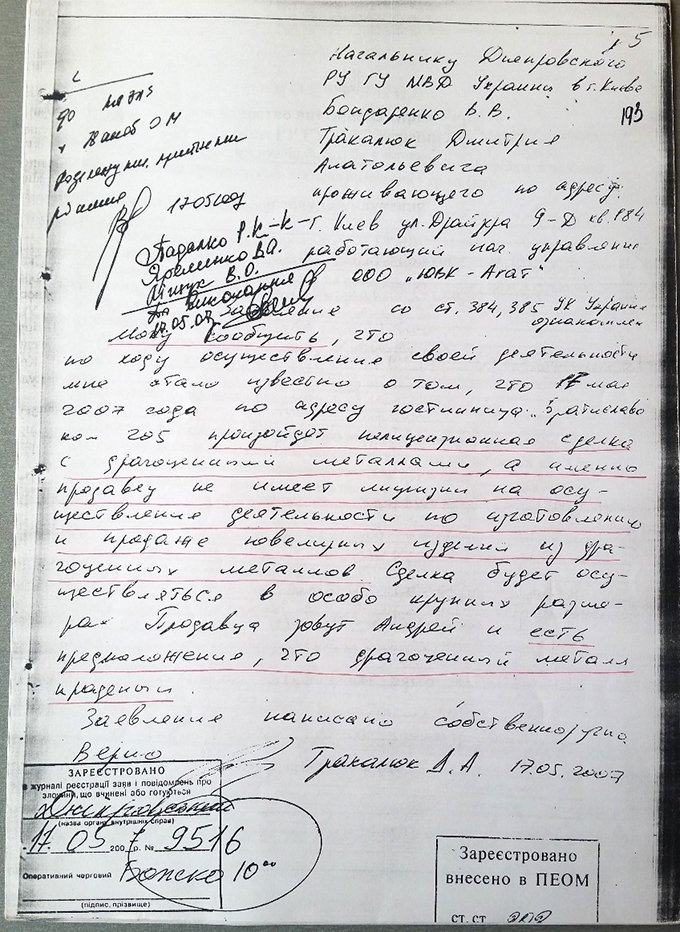 5
193
Начальнику Днепровского
РУ ГУ МВД Украины в г. Киеве
Бондаренко В. В.
Тракалюк Дмитрия
Анатольевича
проживающего по адресу:
г. Киев ул. Драйзера 9-Д кв. 184
работающий нач. управления
ООО "ЮВК-Агат"
до
рішення
17 05
Падалко Р.К-К-
Яременко В.А.
В.О.
До виконання
17.05.07
Заявление со ст. 384, 385 УК Украины
ознакомлен
Могу сообщить, что
по ходу осуществления своей деятельности
мне стало известно о том, что 17 мая
2007 года по адресу гостинница "Братислава
ком 205 произойдет нелицензионная сделка
с драгоценными металлами, а именно
продавец не имеет лицензии на осу-
ществление деятельности по изготовлению
и продаже ювелирных изделий из дра-
гоценных металлов. Сделка будет осу-
ществляться в особо крупных разме-
рах Продавца зовут Андрей и есть
предположение, что драгоценный металл
краденый.
Заявление написано собственноручно.
Верно
Тракалюк Д. А. 17.05.2007
ЗАРЕЄСТРОВАНО
в журналі реєстрації заяв і повідомлень про
злочини, що вчинені або готуються
Дніпровський
(назва органу внутрішніх справ)
17 05 2007 р. № 9516
Оперативний черговий 10 00
(підпис, прізвище)
Зареєстровано
внесено в ПЕОМ
ст. ст